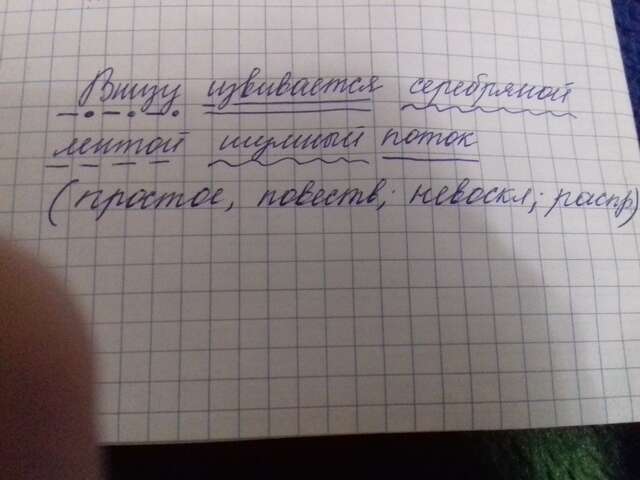 Внизу извивается серебряной
лентой шумный поток
(простое, повеств; невоскл; распр)